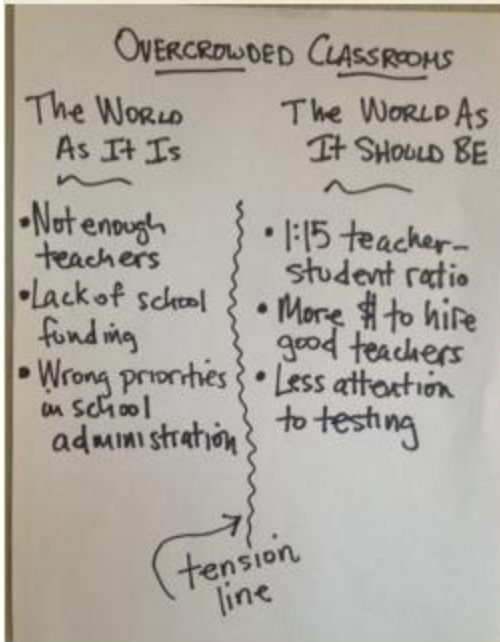 OVERCROWDED CLASSROOMS
The WORLD
As It Is
• Not enough
teachers
• Lack of school
funding
• Wrong priorities
in school
administration
The WORLD As
It SHOULD BE
• 1:15 teacher-
student ratio
• More $ to hire
good teachers
• Less attention
to testing
tension
line